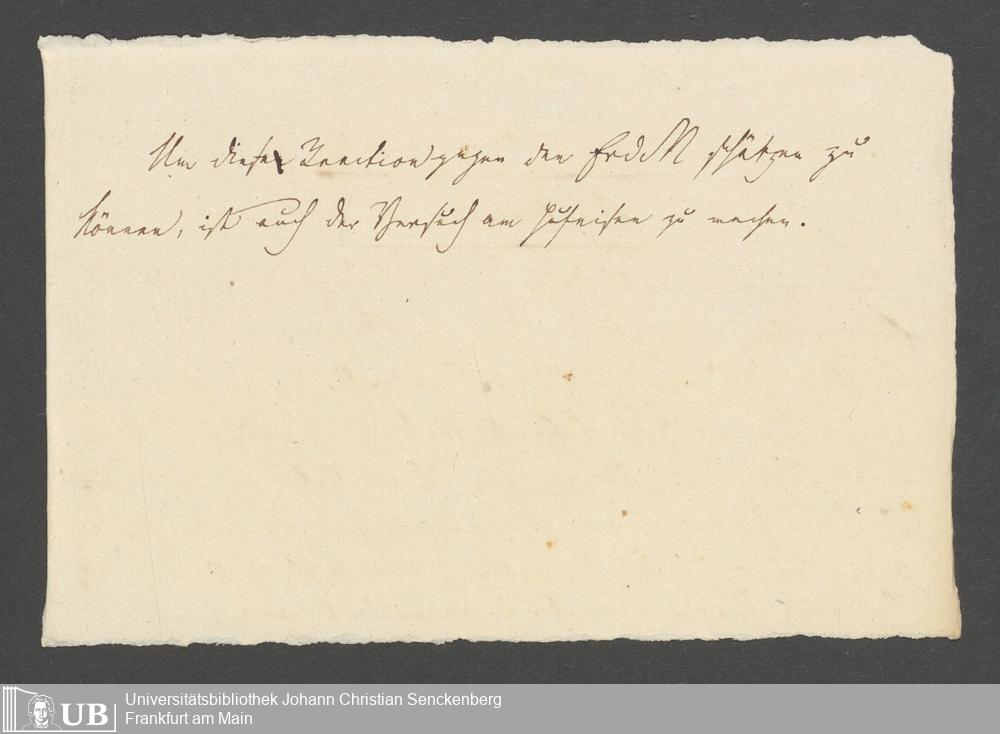 Um diese Reaction gegen den ErdM schätzen zu
können, ist auch der Versuch am Hufeisen zu machen.
Universitätsbibliothek Johann Christian Senckenberg
Frankfurt am Main
UB